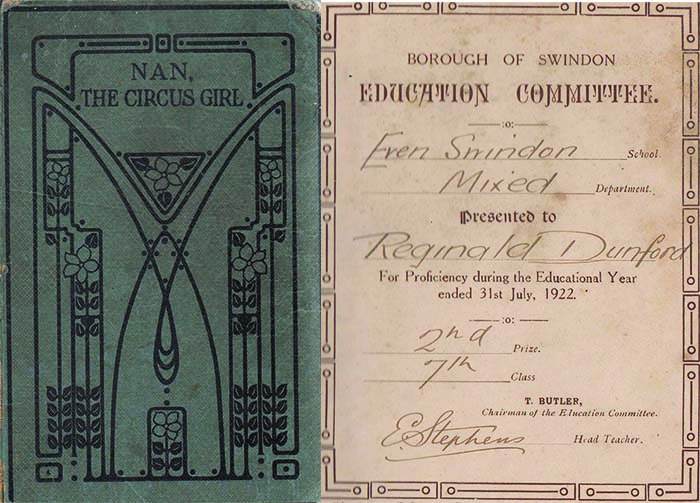 NAN,
THE CIRCUS GIRL
BOROUGH OF SWINDON
EDUCATION COMMITTEE.
:o:
Even Swindon School.
Mixed Department.
Presented to
Reginald Dunford
For Proficiency during the Educational Year
ended 31st July, 1922.
:o:
2nd Prize.
7th Class
T. BUTLER,
Chairman of the Education Committee.
E. Stephens Head Teacher.